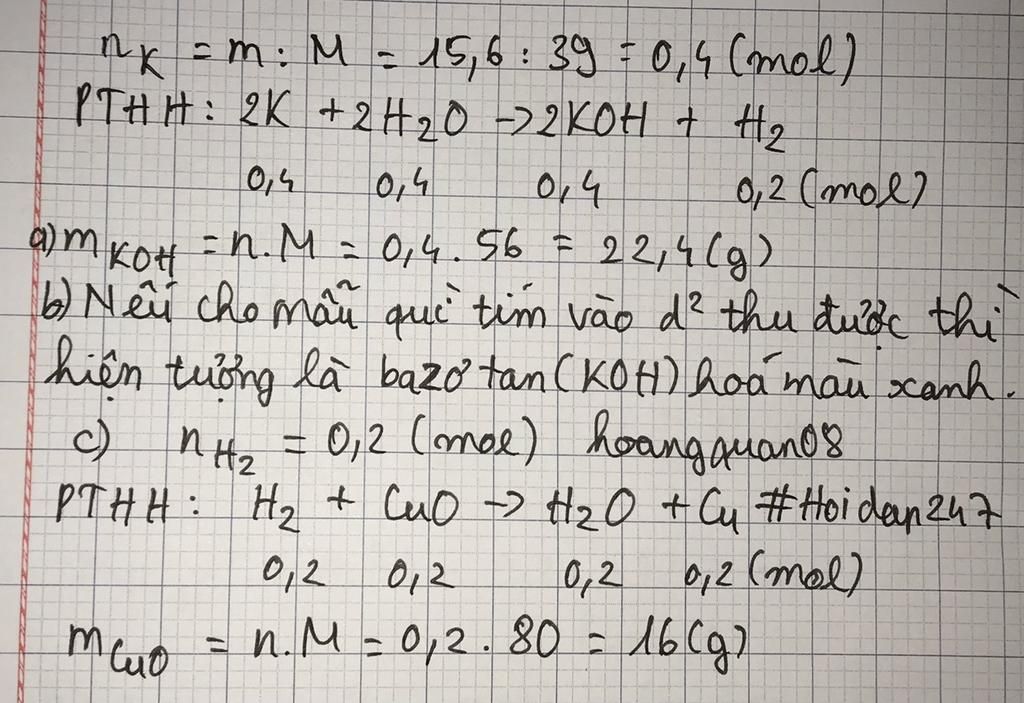 nK = m : M = 15,6 : 39 = 0,4 (mol)
PTHH: 2K + 2H2O → 2KOH + H2
0,4 0,4 0,4 0,2 (mol)
a) mKOH = n.M = 0,4 . 56 = 22,4 (g)
b) Nếu cho mẫu quì tím vào d² thu được thì
hiện tượng là bazơ tan (KOH) hoá màu xanh.
c) nH2 = 0,2 (mol) hoangquan08
PTHH: H2 + CuO → H2O + Cu #Hoidap247
0,2 0,2 0,2 0,2 (mol)
mCuO = n.M = 0,2 . 80 = 16 (g)